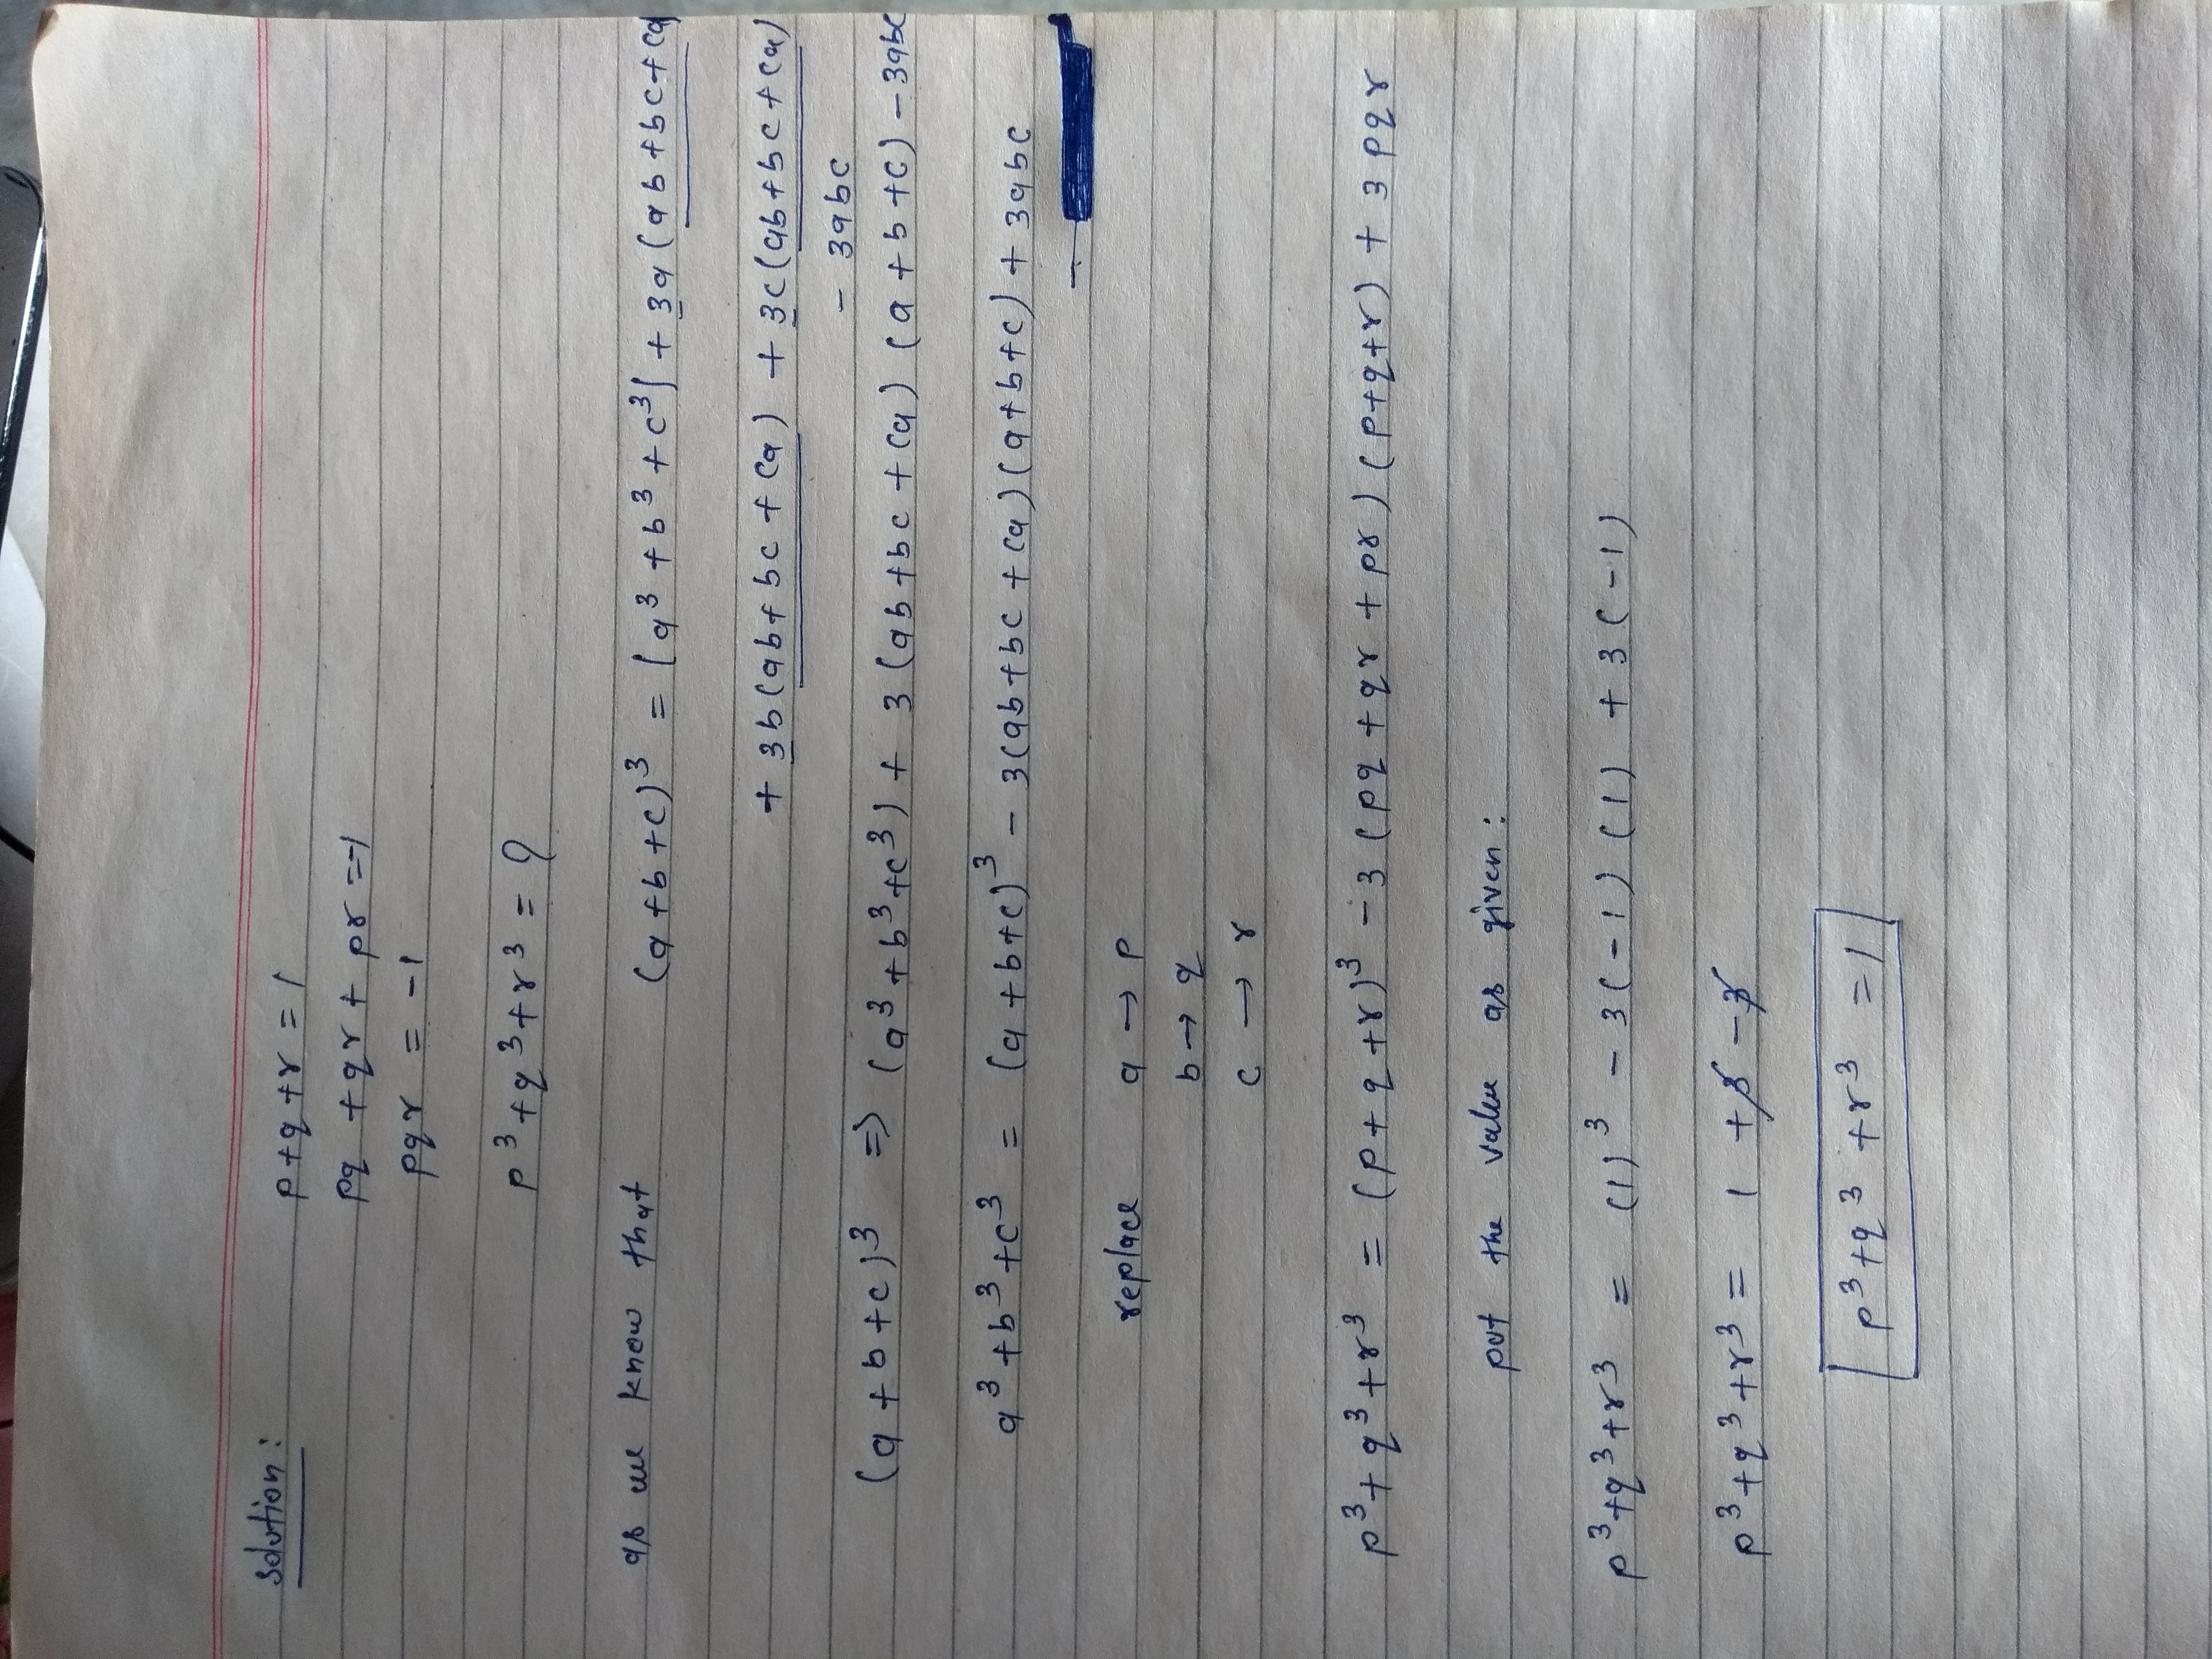 Solution:
p+q+r = 1
pq + qr + pr = -1
pqr = -1
p³+q³+r³ = ?
as we know that (a+b+c)³ = (a³+b³+c³) + 3a(ab+bc+ca)
+ 3b(ab+bc+ca) + 3c(ab+bc+ca)
- 3abc
(a+b+c)³ => (a³+b³+c³) + 3(ab+bc+ca)(a+b+c) - 3abc
a³+b³+c³ = (a+b+c)³ - 3(ab+bc+ca)(a+b+c) + 3abc
replace a → p
b → q
c → r
p³+q³+r³ = (p+q+r)³ - 3(pq+qr+pr)(p+q+r) + 3pqr
put the value as given:
p³+q³+r³ = (1)³ - 3(-1)(1) + 3(-1)
p³+q³+r³ = 1 + 3 - 3
p³+q³+r³ = 1